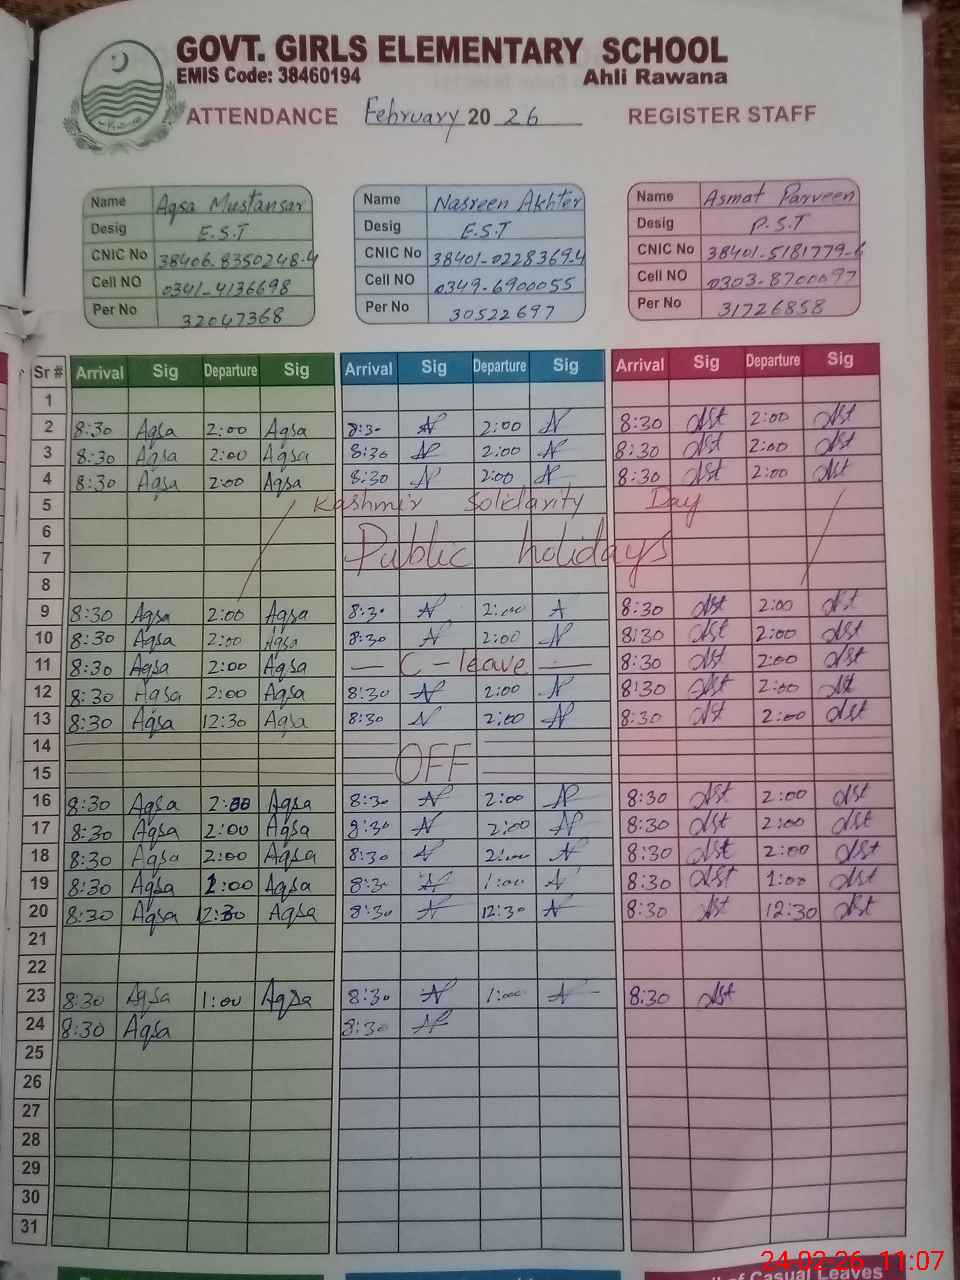 GOVT. GIRLS ELEMENTARY SCHOOL
EMIS Code: 38460194 Ahli Rawana
ATTENDANCE February 20 26 REGISTER STAFF
Name Aqsa Mustansar Name Nasreen Akhter Name Asmat Parveen
Desig E.S.T Desig E.S.T Desig P.S.T
CNIC No 38406-8350248-4 CNIC No 38401-0228369-4 CNIC No 38401-5181779-6
Cell NO 0341-4136698 Cell NO 0349-6900055 Cell NO 0303-8700097
Per No 32047368 Per No 30522697 Per No 31726858
Sr # Arrival Sig Departure Sig Arrival Sig Departure Sig Arrival Sig Departure Sig
1
2 8:30 Aqsa 2:00 Aqsa 8:30 N 2:00 N 8:30 Ast 2:00 Ast
3 8:30 Aqsa 2:00 Aqsa 8:30 N 2:00 N 8:30 Ast 2:00 Ast
4 8:30 Aqsa 2:00 Aqsa 8:30 N 2:00 N 8:30 Ast 2:00 Ast
5 Kashmir Solidarity Day
6
7 Public holidays
8
9 8:30 Aqsa 2:00 Aqsa 8:30 N 2:00 N 8:30 Ast 2:00 Ast
10 8:30 Aqsa 2:00 Aqsa 8:30 N 2:00 N 8:30 Ast 2:00 Ast
11 8:30 Aqsa 2:00 Aqsa — C-leave — 8:30 Ast 2:00 Ast
12 8:30 Aqsa 2:00 Aqsa 8:30 N 2:00 N 8:30 Ast 2:00 Ast
13 8:30 Aqsa 12:30 Aqsa 8:30 N 2:00 N 8:30 Ast 2:00 Ast
14
OFF
15
16 8:30 Aqsa 2:00 Aqsa 8:30 N 2:00 N 8:30 Ast 2:00 Ast
17 8:30 Aqsa 2:00 Aqsa 8:30 N 2:00 N 8:30 Ast 2:00 Ast
18 8:30 Aqsa 2:00 Aqsa 8:30 N 2:00 N 8:30 Ast 2:00 Ast
19 8:30 Aqsa 1:00 Aqsa 8:30 N 1:00 N 8:30 Ast 1:00 Ast
20 8:30 Aqsa 12:30 Aqsa 8:30 N 12:30 N 8:30 Ast 12:30 Ast
21
22
23 8:30 Aqsa 1:00 Aqsa 8:30 N 1:00 N 8:30 Ast
24 8:30 Aqsa 8:30 N
25
26
27
28
29
30
31
24-02-26 11:07
of Casual Leaves